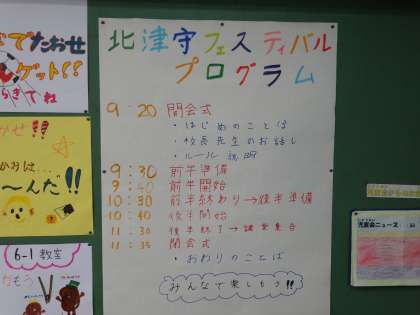 北津守フェスティバル
プログラム
9:20 開会式
・はじめのことば
・校長先生のお話し
・ルール説明
9:30 前半準備
9:40 前半開始
10:30 前半終わり→後半準備
10:40 後半開始
11:30 後半終了→講堂集合
11:35 閉会式
・おわりのことば
みんなで楽しもう!!
でたおせ
ゲット!!
てね
かせ!!
〜んだ!!
6-1教室
児童会ニュース